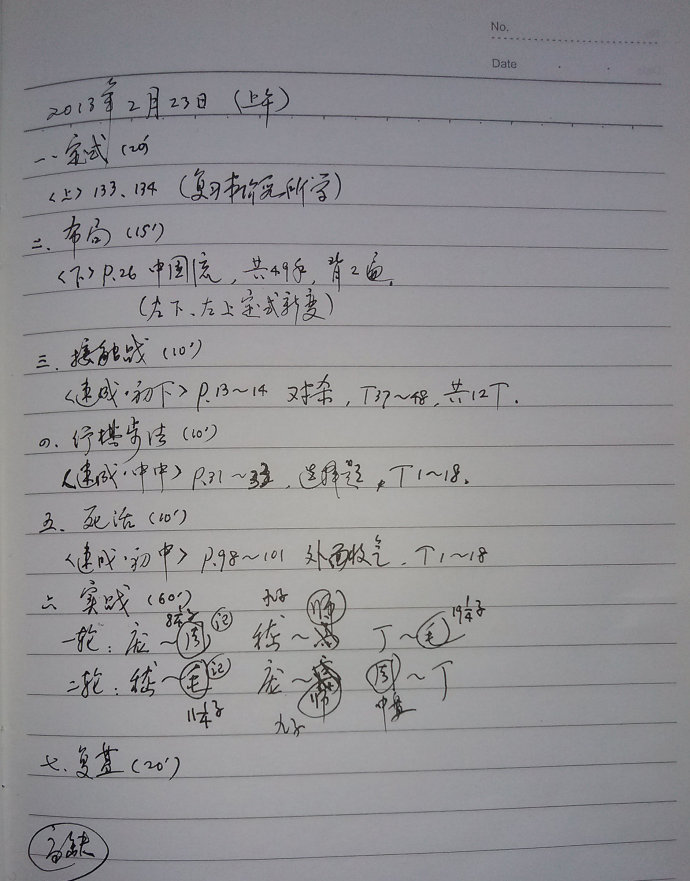 No.
Date
2013年2月23日（上午）
一、定式（20'）
〈上〉133、134（复习本阶段所学）
二、布局（15'）
〈下〉P.26 中国流，共49手，背2遍。
（左下、左上定式新变）
三、接触战（10'）
〈速成·初下〉P.13~14 对杀，T37~48，共12T.
四、行棋步法（10'）
〈速成·中中〉P.31~33，选择题，T1~18。
五、死活（10'）
〈速成·初中〉P.98~101 外面收气，T1~18
六、实战（60'）
九子 师 19¼子
一轮：庞~周 记 嵇~ 丁~毛
二轮：嵇~毛 记 庞~师 周~丁
11¼子 九子 中盘
七、复盘（20'）
高缺